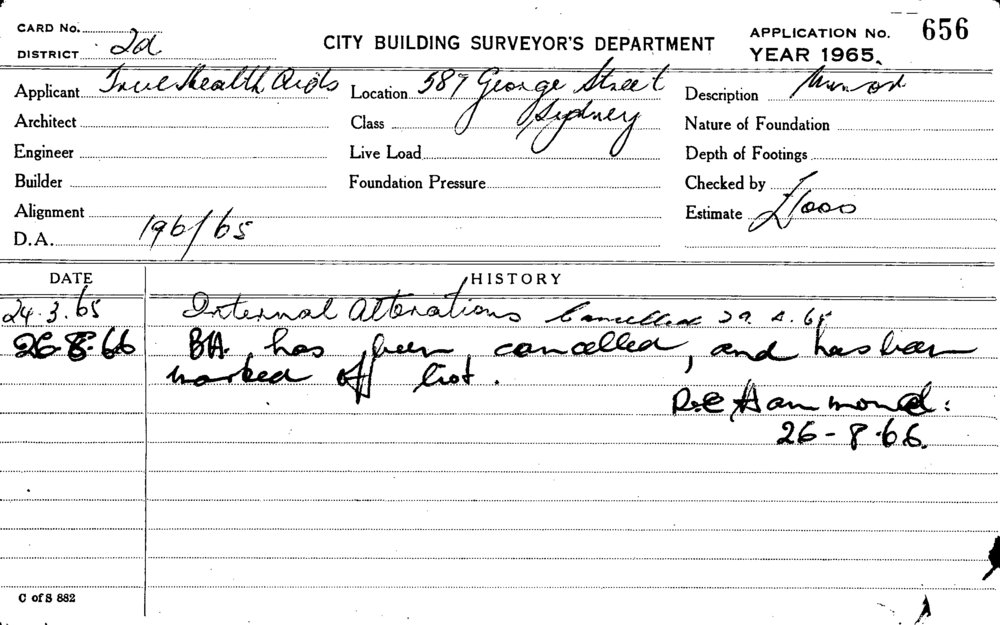 CARD No.
DISTRICT 2d
CITY BUILDING SURVEYOR'S DEPARTMENT
APPLICATION No. 656
YEAR 1965.
Applicant True Health Aids Location 589 George Street Description
Architect Class Sydney Nature of Foundation
Engineer Live Load Depth of Footings
Builder Foundation Pressure Checked by
Alignment Estimate £1000
D.A. 196/65
DATE HISTORY
24.3.65 Internal Alterations Cancelled 29.4.65
26-8-66 BA. has been cancelled, and has been
marked off list.
R.C Hammond:
26-8-66.
C of S 882